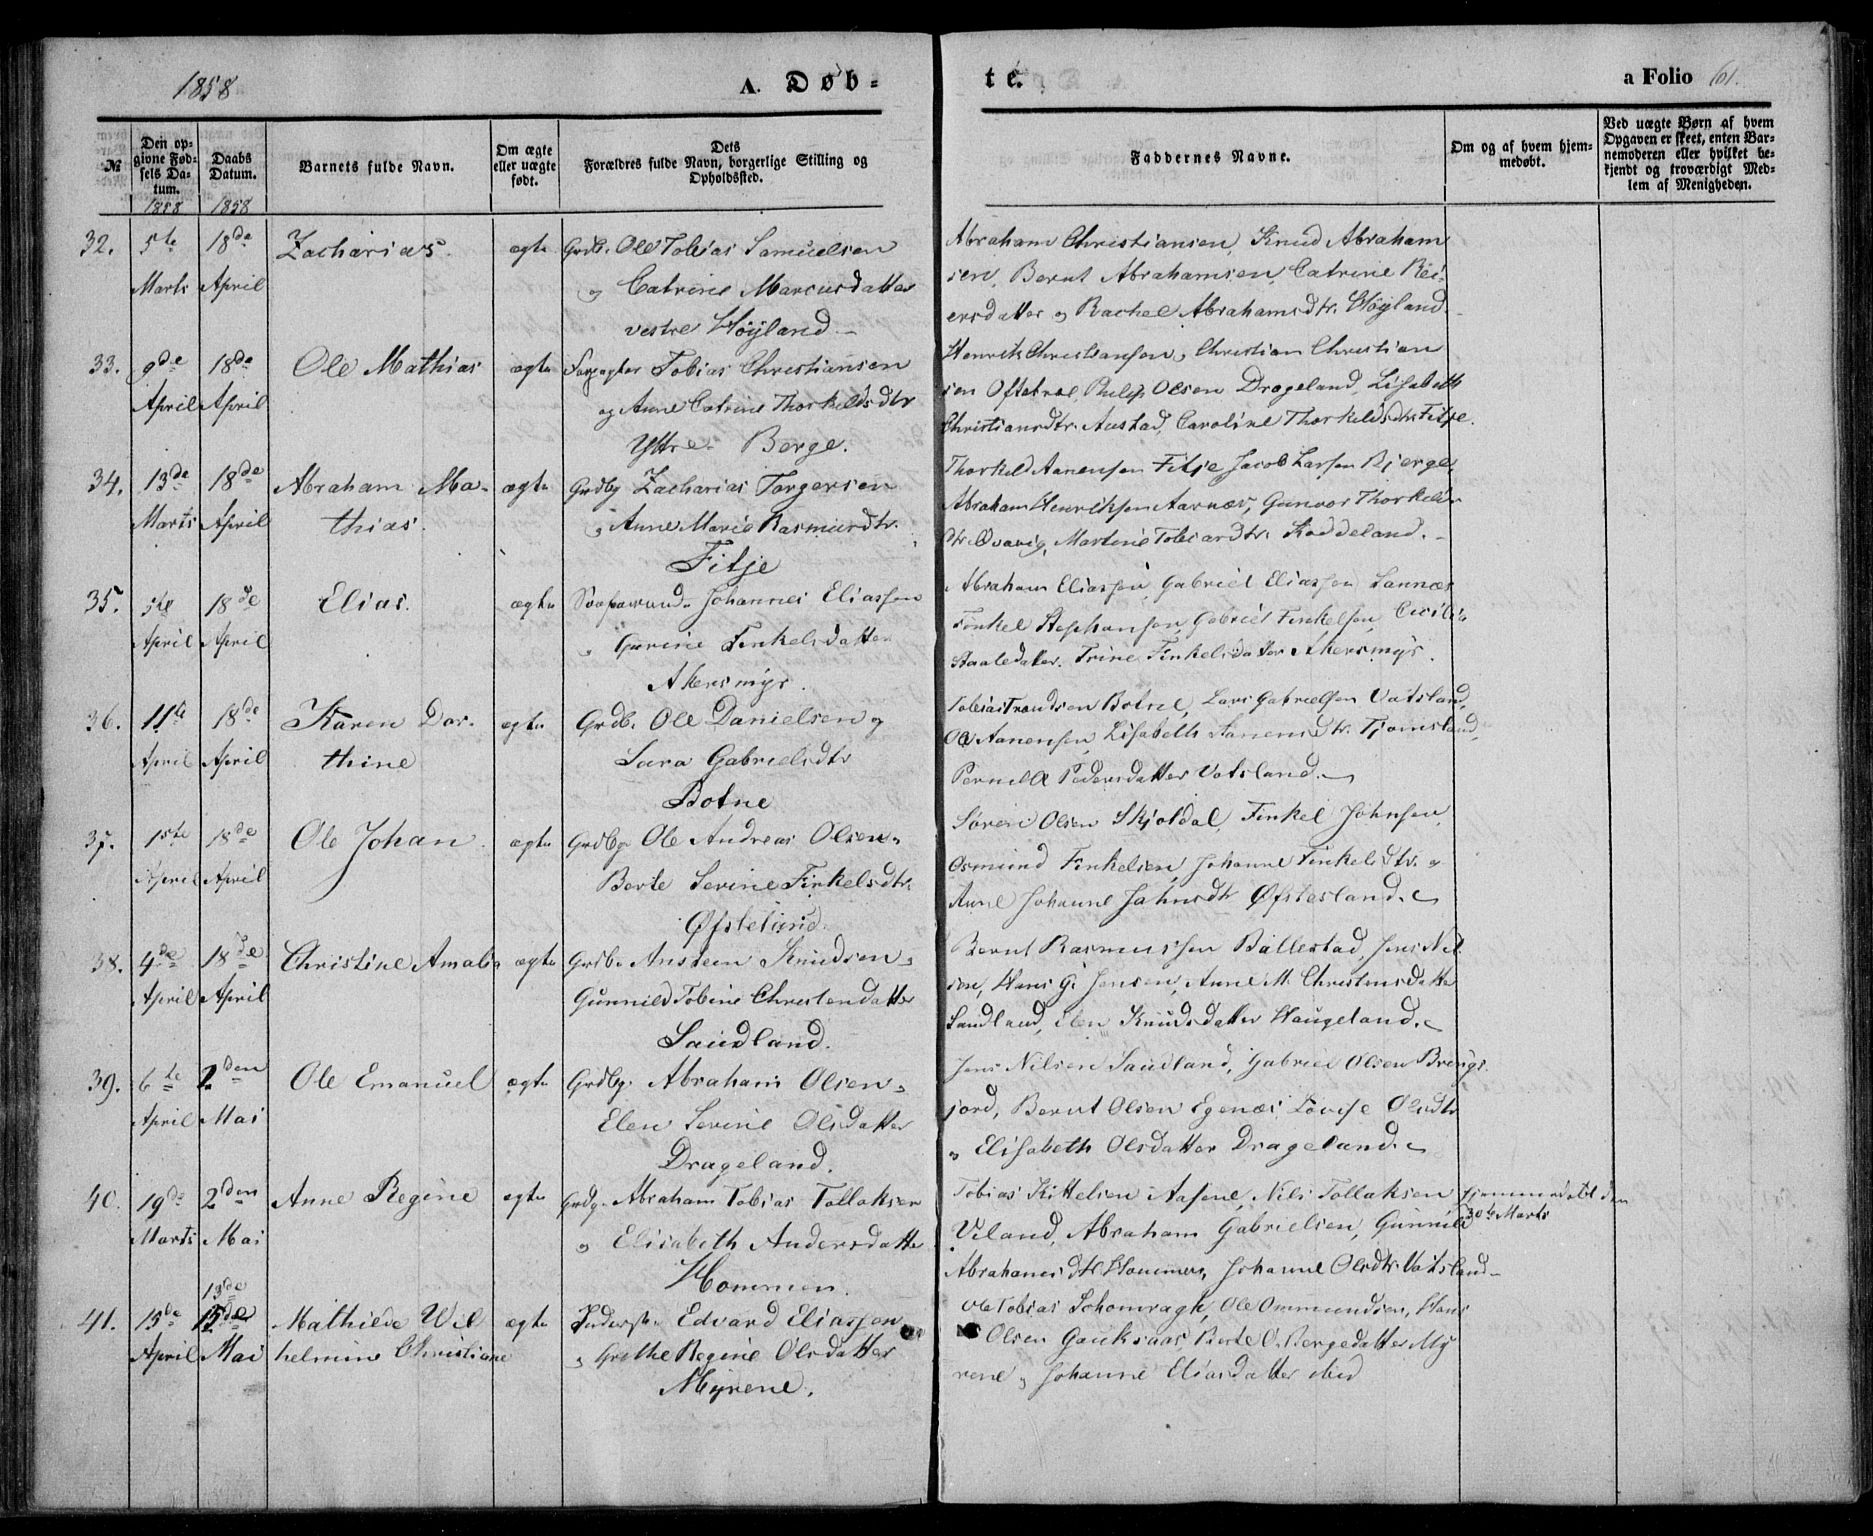 1858
A. Døb-
te.
a Folio 61.
№
Den op-
givne Fød-
sels Da-
tum.
1858
Daabs
Datum.
1858
Barnets fulde Navn.
Om ægte
eller uægte
født.
Dets
Forældres fulde Navn, borgerlige Stilling og
Opholdssted.
Faddernes Navne.
Om og af hvem hjem-
medøbt.
Ved uægte Børn af hvem
Opgaven er skeet, enten Bar-
nemoderen eller hvilket be-
kjendt og troværdigt Med-
lem af Menigheden.
32. 5te 18de Zacharias. ægte Grdb. Ole Tobias Samuelsen
Marts April og Catrine Marcusdatter
vestre Høyland
Abraham Christiansen, Knud Abraham
sen, Bernt Abrahamsen, Catrine Rei-
ersdatter og Rachel Abrahamsdtr. Høyland.
33. 9de 18de Ole Mathias ægte Tobias Christiansen
April April og Anne Catrine Thorkildsdtr
Yttre Berge.
Henrik Christiansen, Christian Christian
sen Oftebroe, Philip Olsen Drageland, Lisabeth
Christiansdtr. Austad, Caroline Thorkildsdtr. Fitje.
34. 13de 18de Abraham Ma- ægte Grdbg Zacharias Torgersen
Marts April thias. og Anne Marie Rasmusdtr.
Fitje
Thorkild Aanensen Fitje Jacob Larsen Bjerge,
Abraham Henriksen Aarnæs, Gunvor Thorkilds-
dtr. Qvavig, Martine Tobiasdtr. Koddeland.
35. 5te 18de Elias. ægte Johannes Eliassen
April April Gurine Finkelsdatter
Akersmyr.
Abraham Eliassen, Gabriel Eliassen Sannæs
Finkel Stephansen, Gabriel Finkelsen, Cecilie
Staalesdatter. Trine Finkelsdatter Akersmyr.
36. 11te 18de Karen Dor- ægte Grdb. Ole Danielsen og
April April thine Sara Gabrielsdtr
Botne
Tobias Trondsen Botne, Lars Gabrielsen Vatsland,
Ole Aanensen, Lisabeth Tjomsland,
Pernille Pedersdatter Vatsland.
37. 15te 18de Ole Johan ægte Grdbg. Ole Andreas Olsen og
April April Berte Serine Finkelsdtr.
Øfstesland
Søren Olsen Skjoldal, Finkel Johnsen,
Osmund Finkelsen, Johanne Finkelsdtr. og
Anne Johanne Johnsdtr Øfstesland.
38. 4de 18de Christine Amalia ægte Grdb. Ansteen Knudsen og
April April Gunnild Tobine Christensdatter
Saudland.
Bernt Rasmussen Ballestad, Jens Niel
sen, Hans G. Jensen, Anne M. Christensdatter
Saudland, Elen Knudsdatter Haugeland.
39. 6te 2den Ole Emanuel ægte Grdbg. Abraham Olsen og
April Mai Elen Serine Olsdatter
Drageland.
Jens Nilsen Saudland, Gabriel Olsen Brings
jord, Bernt Olsen Egenæs, Lovise Olsdtr
og Elisabeth Olsdatter Drageland.
40. 19de 2den Anne Regine ægte Grdg. Abraham Tobias Tollaksen
Marts Mai og Elisabeth Andersdatter
Hommen.
Tobias Kittelsen Aasene, Nils Tollaksen
Veland, Abraham Gabrielsen, Gunnild
Abrahamsdtr Hommen, Johanne Olsdtr Vatsland
Hjemmedøbt den
30te Marts
13de
41. 15de 15de Mathilde Wil ægte Inderst. Edvard Eliassen
April Mai helmine Christiane og Grethe Regine Olsdatter
Myrene.
Ole Tobias Schomragh, Ole Ommundsen, Hans
Olsen Gauksaas, Berte O. Bergesdatter My
rene og Johanne Eliasdatter ibid